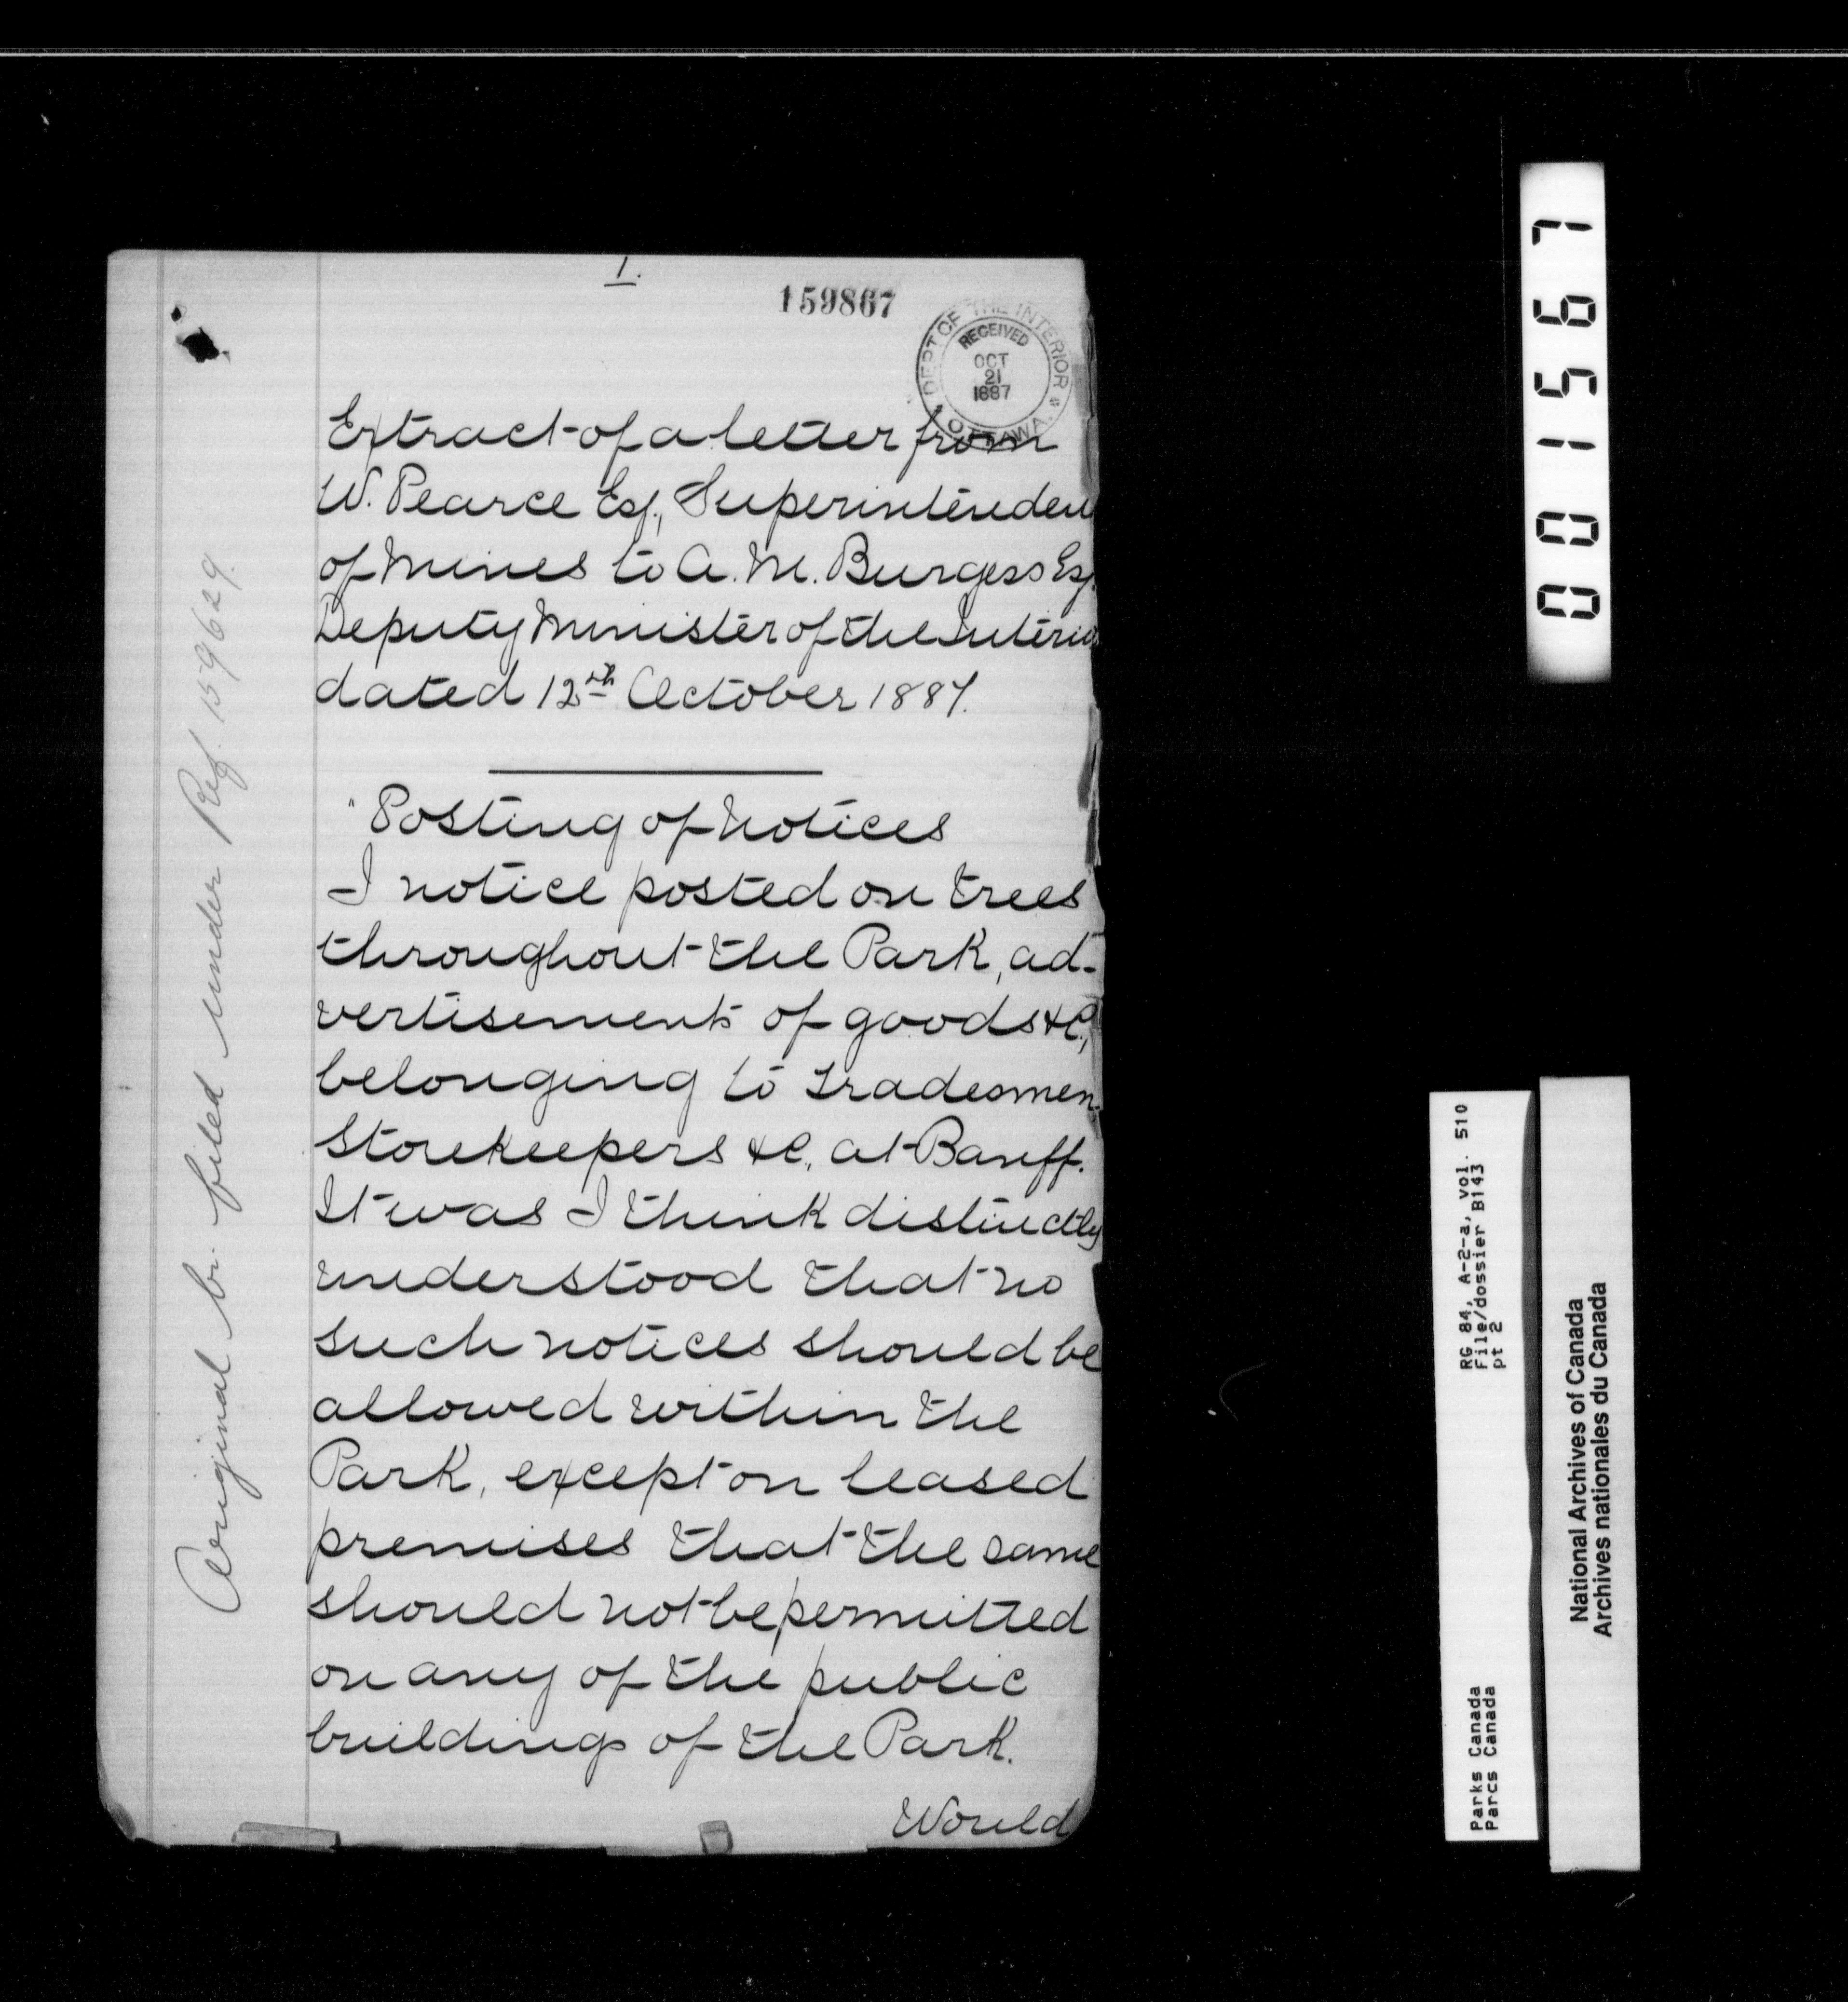 1.
159867
DEPT OF THE INTERIOR
RECEIVED
OCT
21
1887
OTTAWA.
Extract of a letter from
W. Pearce Esq., Superintenden
of Mines to A. M. Burgess Esq.
Deputy Minister of the Interio
dated 12th October 1887.
"Posting of Notices
I notice posted on trees
throughout the Park, ad-
vertisements of goods &c.,
belonging to tradesmen
Storekeepers &c., at Banff.
It was I think distinctly
understood that no
such notices should be
allowed within the
Park, except on leased
premises that the same
should not be permitted
on any of the public
buildings of the Park.
Would
Original filed under Ref. 159629.
001567
RG 84, A-2-a, vol. 510
File/dossier B143
pt 2
Parks Canada
Parcs Canada
National Archives of Canada
Archives nationales du Canada